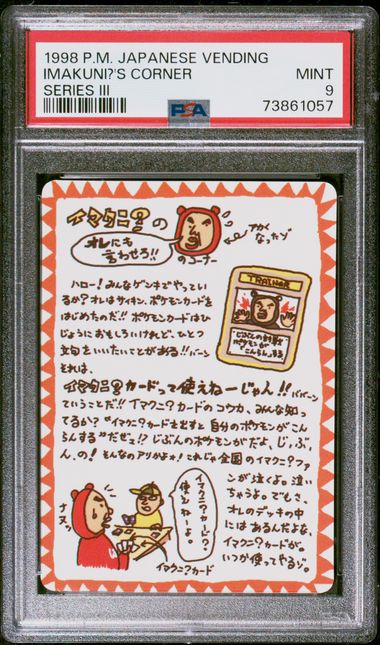 1998 P.M. JAPANESE VENDING
IMAKUNI?'S CORNER
SERIES III
MINT
9
73861057
PSA
イマクニ?の
オレにも
言わせろ!!
のコーナー
アカく
なったゾ
ハロー!みんなゲンキでやってい
るか?オレはサイキン、ポケモンカードを
はじめたのだ!!ポケモンカードはひ
じょうにおもしろいけれど、ひとつ
文句をいいたいことがある!!バーン
それは、
イマクニ?カードって使えねーじゃん!!ババーン
ということだ!!イマクニ?カードのコウカ、みんな知っ
てるか?"イマクニ?カードを出すと自分のポケモンがこん
らんする"だぜっ!?じぶんのポケモンがだよ、じ、ぶ、
ん、の!そんなのアリかよォ!これじゃ全国のイマクニ?ファ
ンが泣くよ。泣い
ちゃうよ。でもさ、
オレのデッキの中
にはあるんだよな、
イマクニ?カードが。
いつか使ってやるゾ。
TRAINER
じぶんの対戦
ポケモンを
こんらん
ナヌッ
イマクニ?カード?
使えねーよ。
イマクニ?カード